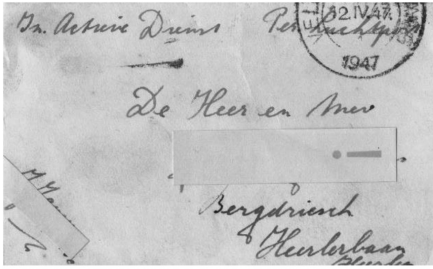 In Actieve Dienst Per Luchtpost
VEL 12.IV.47
1947
De Heer en Mev
Bergdriesch
Heerlerbaan
Heerlen